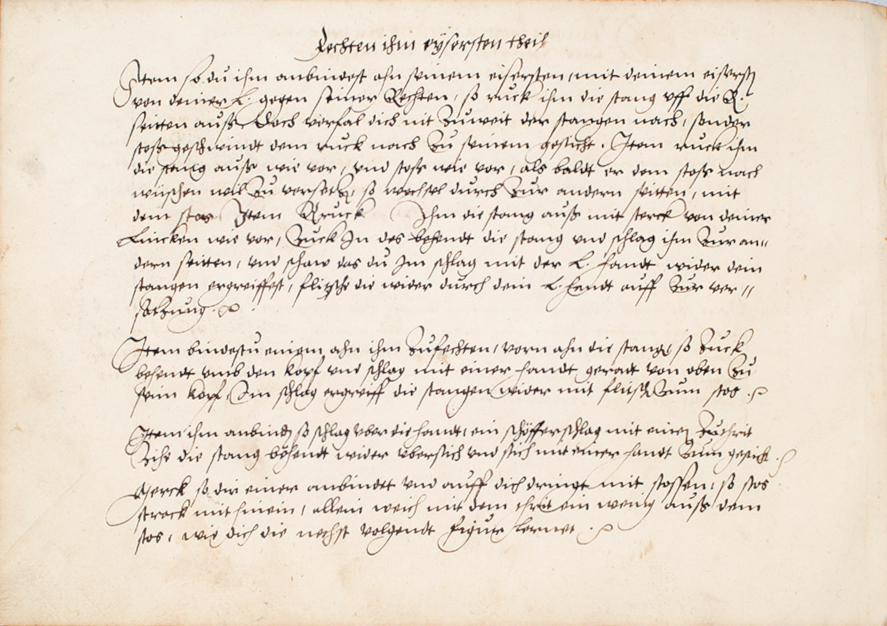 Fechten ihm eysersten theil
Item so du ihm anbindest ahn seinem eisersten, mit deinem eisersten
von deiner L. gegen seiner Rechten, so ruck ihm die stang vff die R.
seitten auß. Doch verfal dich nit Zuweit der stangen nach, sonder
stoß geschwindt dem ruck nach Zu seinem gesicht. Item ruck ihm
die stang auß wie vor, vnd stoß wie vor, als baldt er dem stoß nach
wüschen will Zu versetzen, so wechsel durch Zur andern seitten, mit
dem stos Item Ruck Ihm die stang auß mit sterck von deiner
Lincken wie vor, Zuck In des behendt die stang vnd schlag ihm Zur an=
dern seitten, vnd schaw das du Im schlag mit der L. handt wider dein
stangen ergreiffest, flitsche die wider durch dein L. handt auff Zur ver=
satzung.
Item bindestu einem ahn ihm Zufechten, vorn ahn die stang, so Zuck
behendt vmb den kopf vnd schlag mit einer handt geradt von oben Zu
seim kopf, Im schlag ergreiff die stangen wider mit flitsch Zum stos.
Item ihm anbindt so schlag vber die handt, ein schöfferschlag mit einem Zuthrit
Zihe die stang behendt wider vbersich vnd stich mit einer handt Zum gesicht.
Merck so dir einer anbindet vnd auff dich dringt mit stossen, so stos
strack mit hinein, allein weich mit dem thrit ein wenig auß dem
stos, wie dich die nechst volgendt figur lernet.